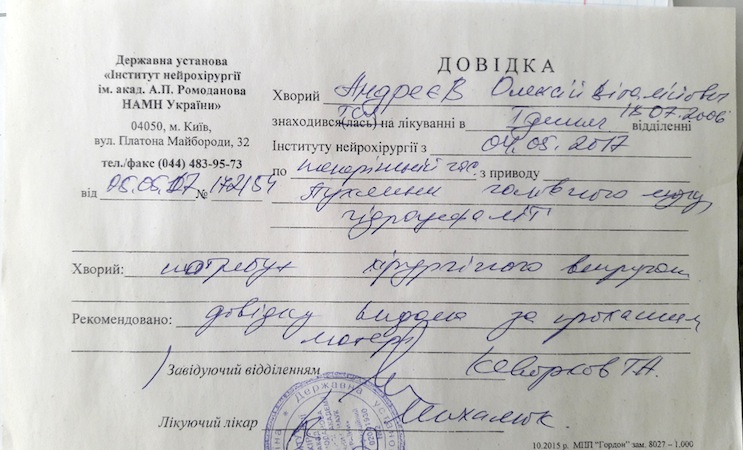 Державна установа
«Інститут нейрохірургії
ім. акад. А.П. Ромоданова
НАМН України»
04050, м. Київ,
вул. Платона Майбороди, 32
тел./факс (044) 483-95-73
від 05.05.17 № 172/54
ДОВІДКА
Хворий Андреєв Олексій Віталійович
18.07.2006
знаходився(лась) на лікуванні в відділенні
Інституту нейрохірургії з 04.05.2017
по теперішній час з приводу
Пухлини головного мозку,
гідроцефалії
Хворий: потребує хірургічного втручання
Рекомендовано: довідку видано за проханням
матері
Завідуючий відділенням Кеворков Г.А.
Лікуючий лікар Михалюк
Державна установа
10.2015 р. МПП "Гордон" зам. 8027 – 1.000